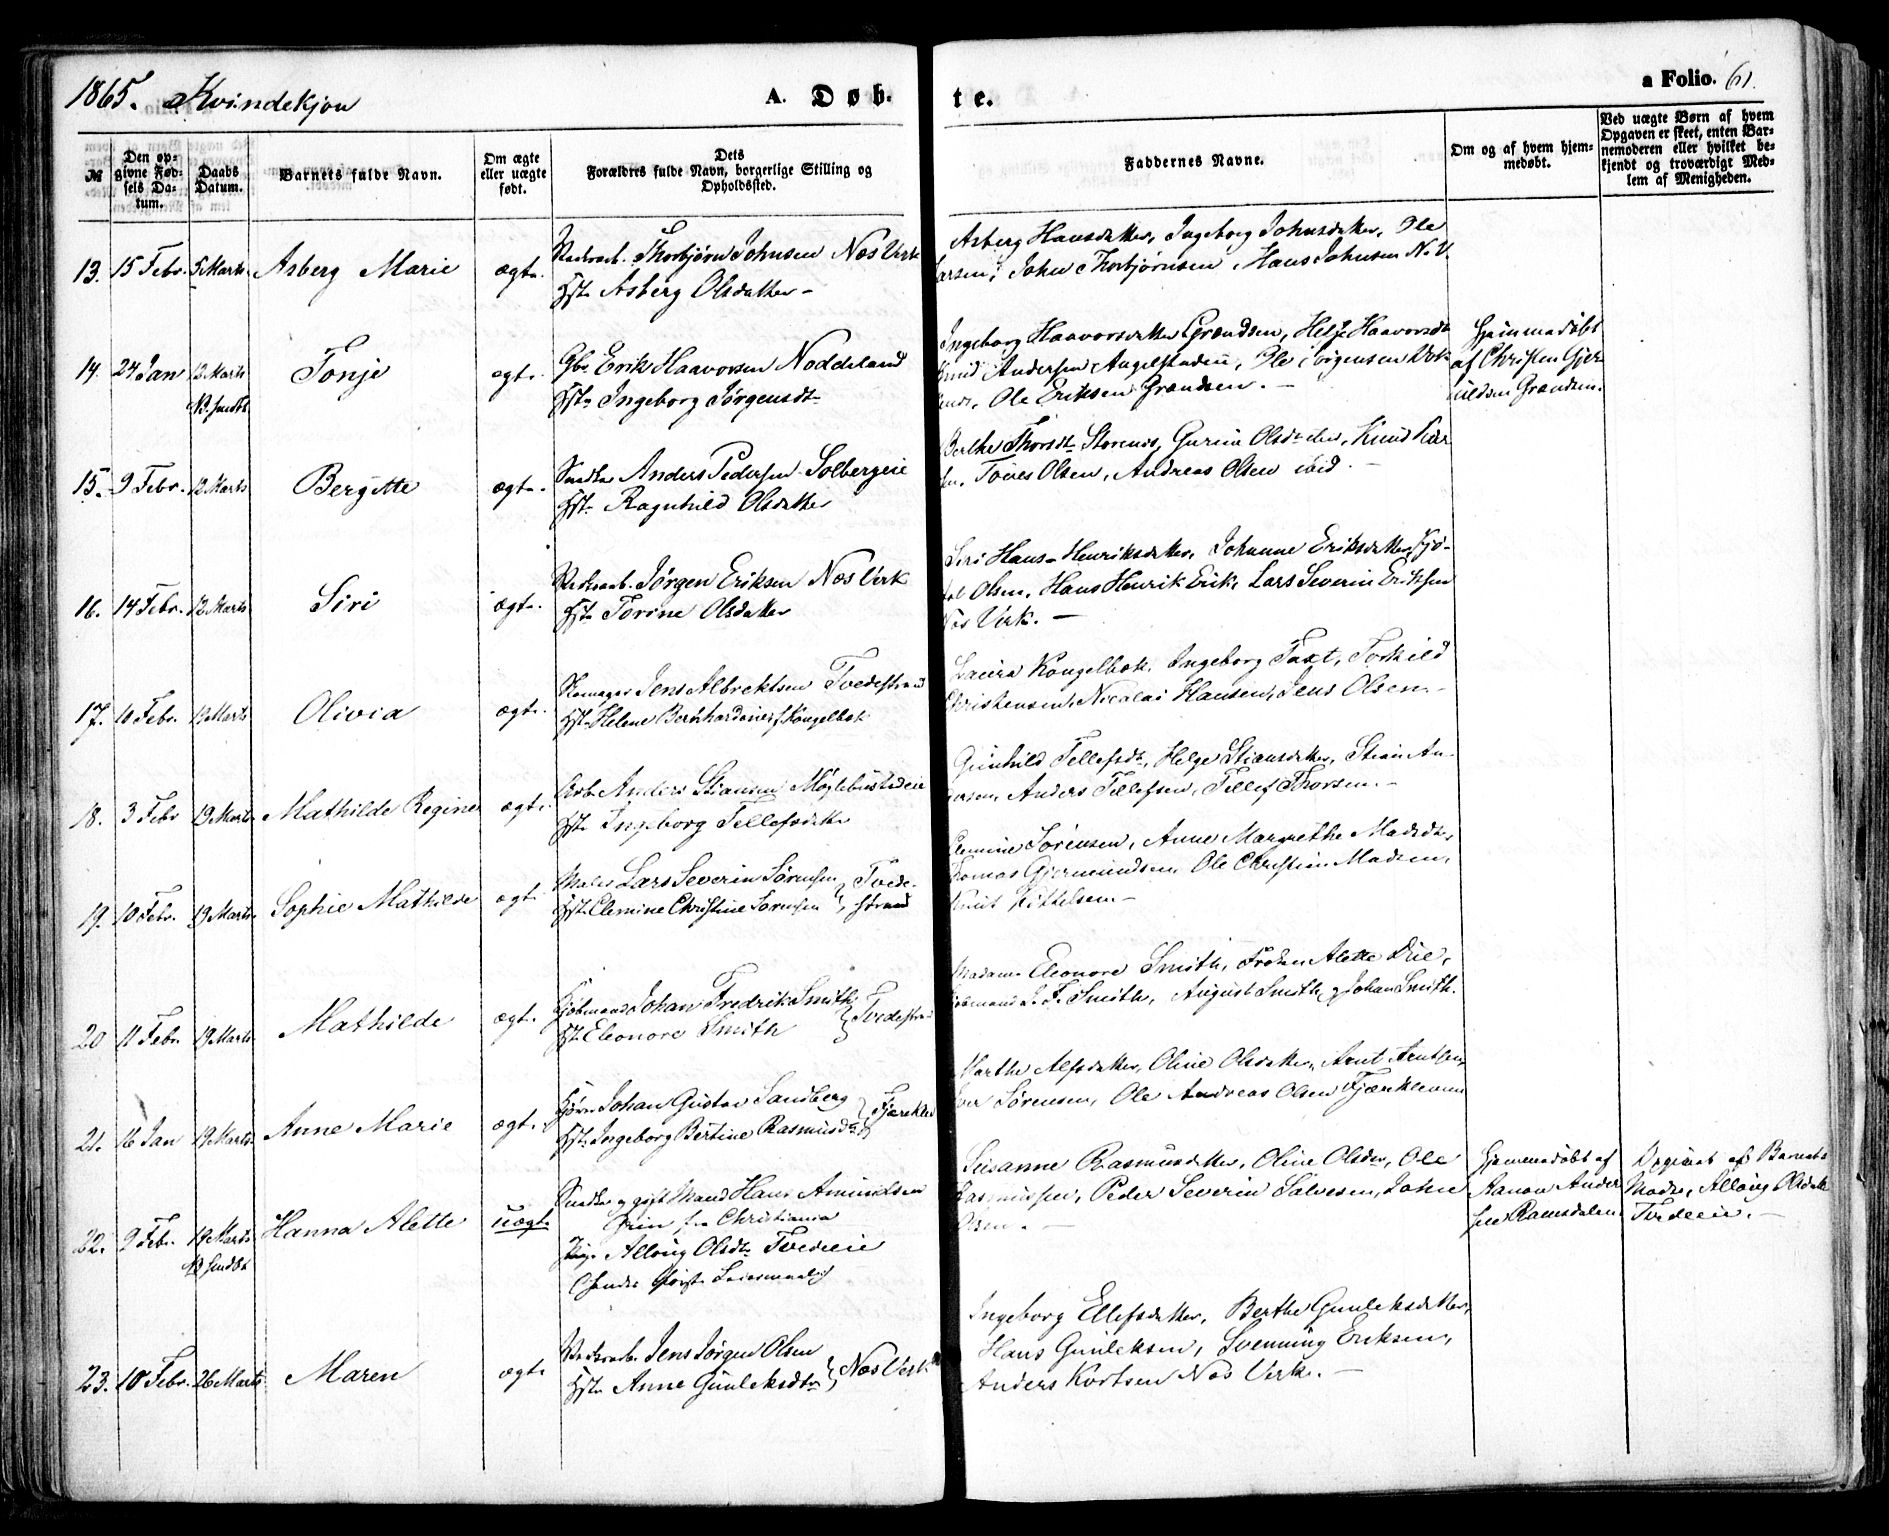 1865. Kvindekjøn
A. Døb-
te.
a Folio. 61.
№
Den op-
givne Fød-
sels Da-
tum.
Daabs
Datum.
Barnets fulde Navn.
Om ægte
eller uægte
født.
Dets
Forældres fulde Navn, borgerlige Stilling og
Opholdssted.
Faddernes Navne.
Om og af hvem hjem-
medøbt.
Ved uægte Børn af hvem
Opgaven er skeet, enten Bar-
nemoderen eller hvilket be-
kjendt og troværdigt Med-
lem af Menigheden.
13. 15 Febr. 5 Marts Asberg Marie ægte.
Thorbjørn Johnsen Næs Værk
Hst. Asberg Olsdatter -
Asberg Hansdatter, Ingeborg Johnsdatter, Ole
Larsen, John Thorbjørnsen, Hans Johnsen N.V.
14. 24 Jan 12 Marts Tonje ægte.
Gbr. Erik Haavorsen Noddeland
Hst. Ingeborg Jørgensdt.
Ingeborg Haavorsdatter Grændsen, Helje Haavorsdt.
Knud Andersen Angelstaden, Ole Jørgensen
Ole Eriksen Grændsen. -
Hjemmedøbt
af Christen
Grændsen.
15. 9 Febr. 12 Marts Bergitte ægte.
Anders Pedersen Solbergeie
Hst. Ragnhild Olsdatter
Berthe Thorsdt. Storenes, Gurine Olsdt. Knud
Tarjes Olsen, Andreas Olsen ibid. -
16. 14 Febr. 12 Marts Siri ægte.
Jørgen Eriksen Næs Værk
Hst. Torine Olsdatter
Siri Hans Henriksdatter, Johanne Eriksdatter,
Olsen, Hans Henrik Erik, Lars Severin Eriksen
Næs Værk. -
17. 10 Febr. 19 Marts Olivia ægte.
Skomager Jens Albrektsen Tvedestrand
Hst. Helene Bernhardine f. Kongelbæk
Laura Kongelbæk, Ingeborg Taxt, Torkild
Christensen, Nicolai Hansen, Jens Olsen -
18. 3 Febr 19 Marts Mathilde Regine ægte.
Arb. Anders Stiansen Møglebustadeie
Hst. Ingeborg Tellefsdatter
Gunhild Tellefsdt., Helge Stiansdatter, Stian An-
dersen, Anders Tellefsen, Tellef Thorsen. -
19. 10 Febr. 19 Marts Sophie Mathilde ægt.
Maler Lars Severin Sørensen } Tvede-
Hst. Clemine Christine Sørensen } strand
Clemine Sørensen, Anne Margrethe Madsdt.,
Thomas Gjermundsen, Ole Christian Madsen,
Knut Kittelsen -
20 11 Febr. 19 Marts Mathilde ægt.
Kjøbmand Johan Fredrik Smith }
Hst. Eleonore Smith } Tvedestra
Madam Eleonore Smith, Frøken Alette Due,
Kjøbmand J. F. Smith, August Smith, Johan Smith.
21. 16 Jan 19 Marts Anne Marie ægt.
Johan Gustav Sandberg }
Hst. Ingeborg Bertine Rasmusdt. }
Marthe Alfsdatter, Oline Olsdatter, Arnt Arntsen,
Sørensen, Ole Andreas Olsen Fjærkleiven
22. 9 Febr. 19 Marts Hanna Alette uægte
gift Mand Hans Amundsen
fra Christiania
Pige Alloug Olsdt. Tvedeeie
første Leiermaal
Susanne Rasmusdatter, Oline Olsdr., Ole
Rasmussen, Peder Severin Salvesen, John
Olsen. -
Hjemmedøbt af
Aanon Ander
sen Ramsdalen
Opgivet af Barnets
Moder, Alloug Olsdatter
Tvedeeie. -
23. 10 Febr. 26 Marts Maren ægt.
Jens Jørgen Olsen }
Hst. Anne Gunleksdtr. } Næs Værk
Ingeborg Ellefsdatter, Berthe Gunleksdatter,
Hans Gunleksen, Svenning Eriksen,
Anders Kortsen Næs Værk. -